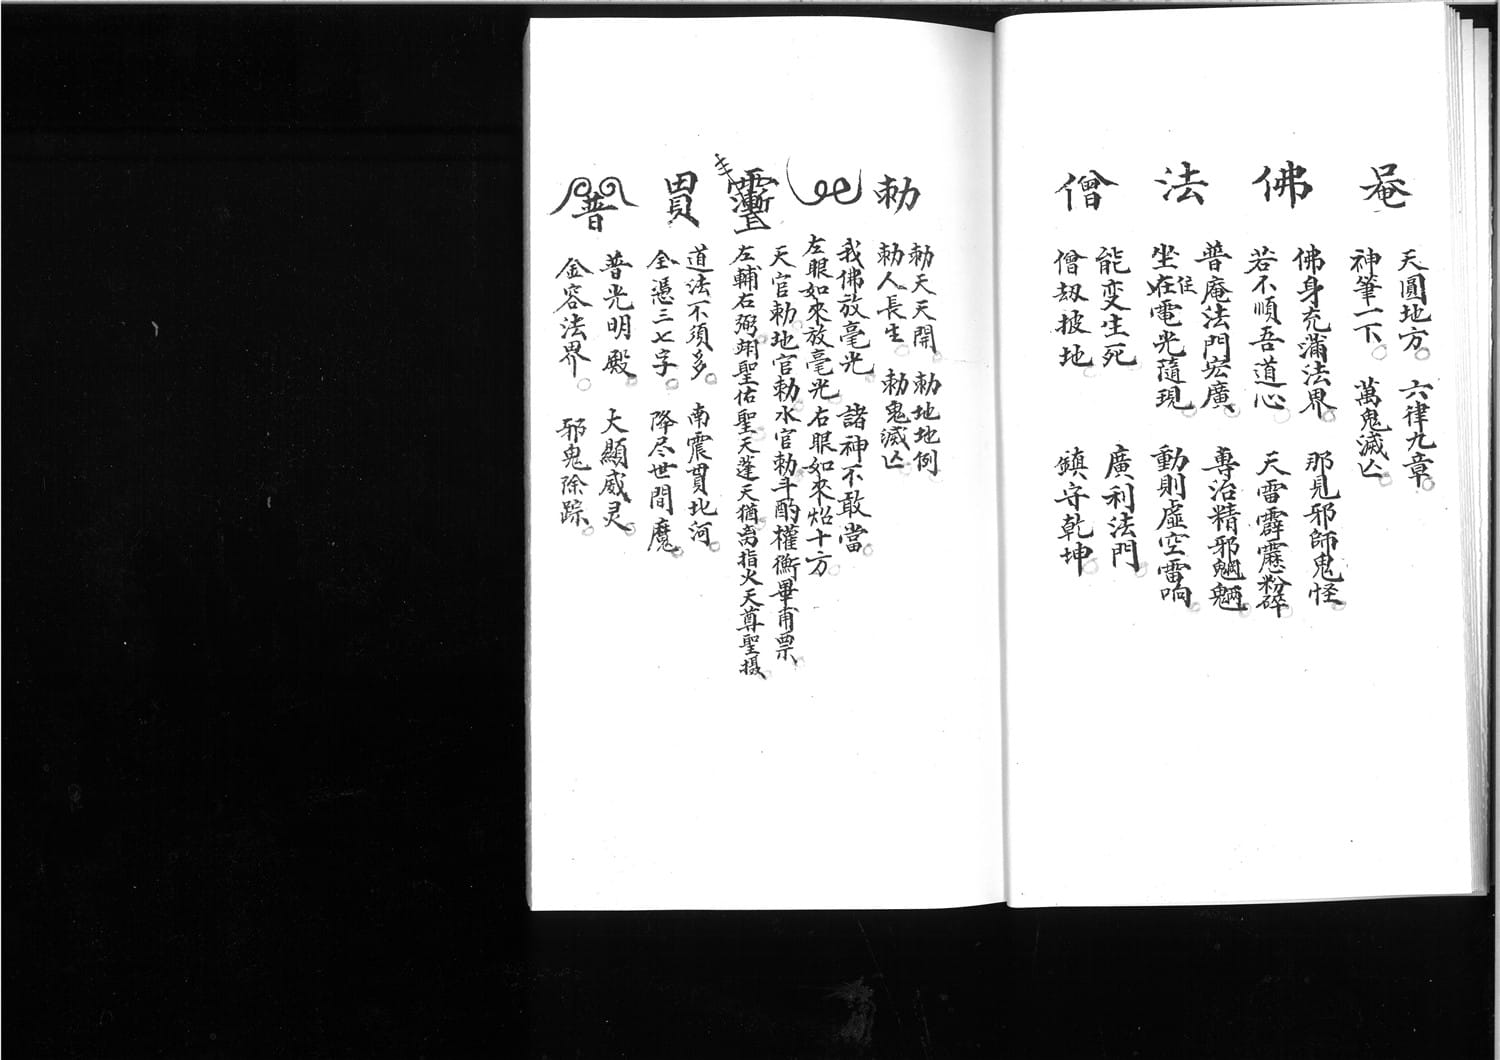 唵
天圓地方。六律九章。
神筆一下。萬鬼滅亾。
佛
佛身充滿法界。那見邪師鬼怪。
若不順吾道心 天雷霹靂粉碎。
法
普庵法門宏廣。專治精邪魍魎。
坐在住電光隨現。動則虛空雷响。
僧
能变生死 廣利法門。
僧刼披地。鎮守乾坤。
勅
勅天天開。勅地地例。
勅人長生。勅鬼滅亾。
我佛放毫光。諸神不敢當。
左眼如來放毫光。右眼如來炤十方。
天官勅地官勅水官勅斗酌權衡畢甫票。
左輔右弼翊聖佑聖天蓬天猶禼指火天尊聖摄。
道法不須多。南震貫北河。
全憑三七字。降尽世間魔。
普
普光明殿。大顯威灵。
金容法界。邪鬼除踪。